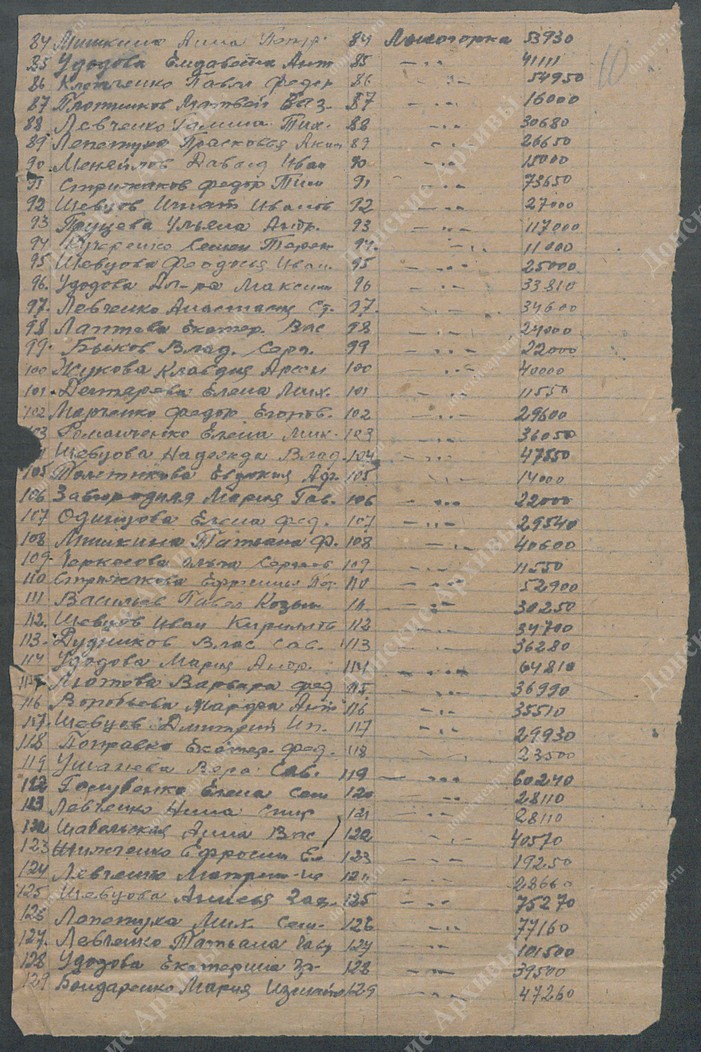 10
84 Мишкина Анна Петр. 84 Лысогорка 53930
85 Удодова Елизавета Ант 85 - " - 41111
86 Клопченко Павел Федор 86 - " - 54950
87 Плотников Матвей 87 - " - 16000
88 Левченко Тих. 88 - " - 30680
89 Лепетуха Прасковья Аким 89 - " - 26650
90 Меняйлов Давыд Иван 90 - " - 15000
91 Стрижаков Федор Тим 91 - " - 73650
92 Шевцов Игнат Иванов 92 - " - 27000
93 Пущева Ульяна Андр. 93 - " - 117000
94 Кучеренко Семен 94 - " - 11000
95 Шевцова Феодосья Иван. 95 - " - 25000
96. Удодова Максим 96 - " - 33810
97. Левченко Анастасия Ст. 97. - " - 34600
98 Лаптева Екатер. Вас 98 - " - 24000
99 Быков Влад. Серг. 99 - " - 22000
100 Жукова Клавдия Арсен 100 - " - 40000
101 Дегтярева Елена Мих. 101 - " - 11550
102 Марченко Федор Егоров. 102 - " - 29600
103 Романченко Елена Мих. 103 - " - 36050
Шевцова Надежда Влад. 104 - " - 47550
105 Евдокия 105 - " - 14000
106 Забгородняя Мария Гав. 106 - " - 22000
107 Одинцова Елена Фед. 107 - " - 29540
108 Мишкина Татьана Ф. 108 - " - 40600
109 Ольга 109 - " - 11550
110 Стрижакова Ефросинья 110 - " - 52900
111 Васильев Павел Козьм 11. - " - 30250
112. Шевцов Иван Кириллов 112 - " - 34700
113. Дудников Влас Сав. 113 - " - 36280
114 Удодова Мария Андр. 114 - " - 64810
115 Варвара Фед 115. - " - 36990
116 Воробьева Марфа Ант 116 - " - 35510
117. Шевцов Дмитрий Ип. 117 - " - 29930
118 Поправко Екатер. Фед. 118 - " - 23500
119 Ушанева Вера Сав. 119 - " - 60240
112 Голубенко Елена Сем 120 - " - 28110
113 Левченко Нина Спир 121 - " - 28110
122 Шабельская Анна Вас 122 - " - 40570
123 Ефросин Ев 123 - " - 19250
124 Левченко 124 - " - 28660
125 Шевцова Анисья Зах. 125 - " - 75270
126 Лепетуха Мих. Сем. 126 - " - 77160
127. Левченко Татьана 127 - " - 101500
128 Удодова Екатерина Гр. 128 - " - 39500
129 Бондаренко Мария 129 - " - 47260